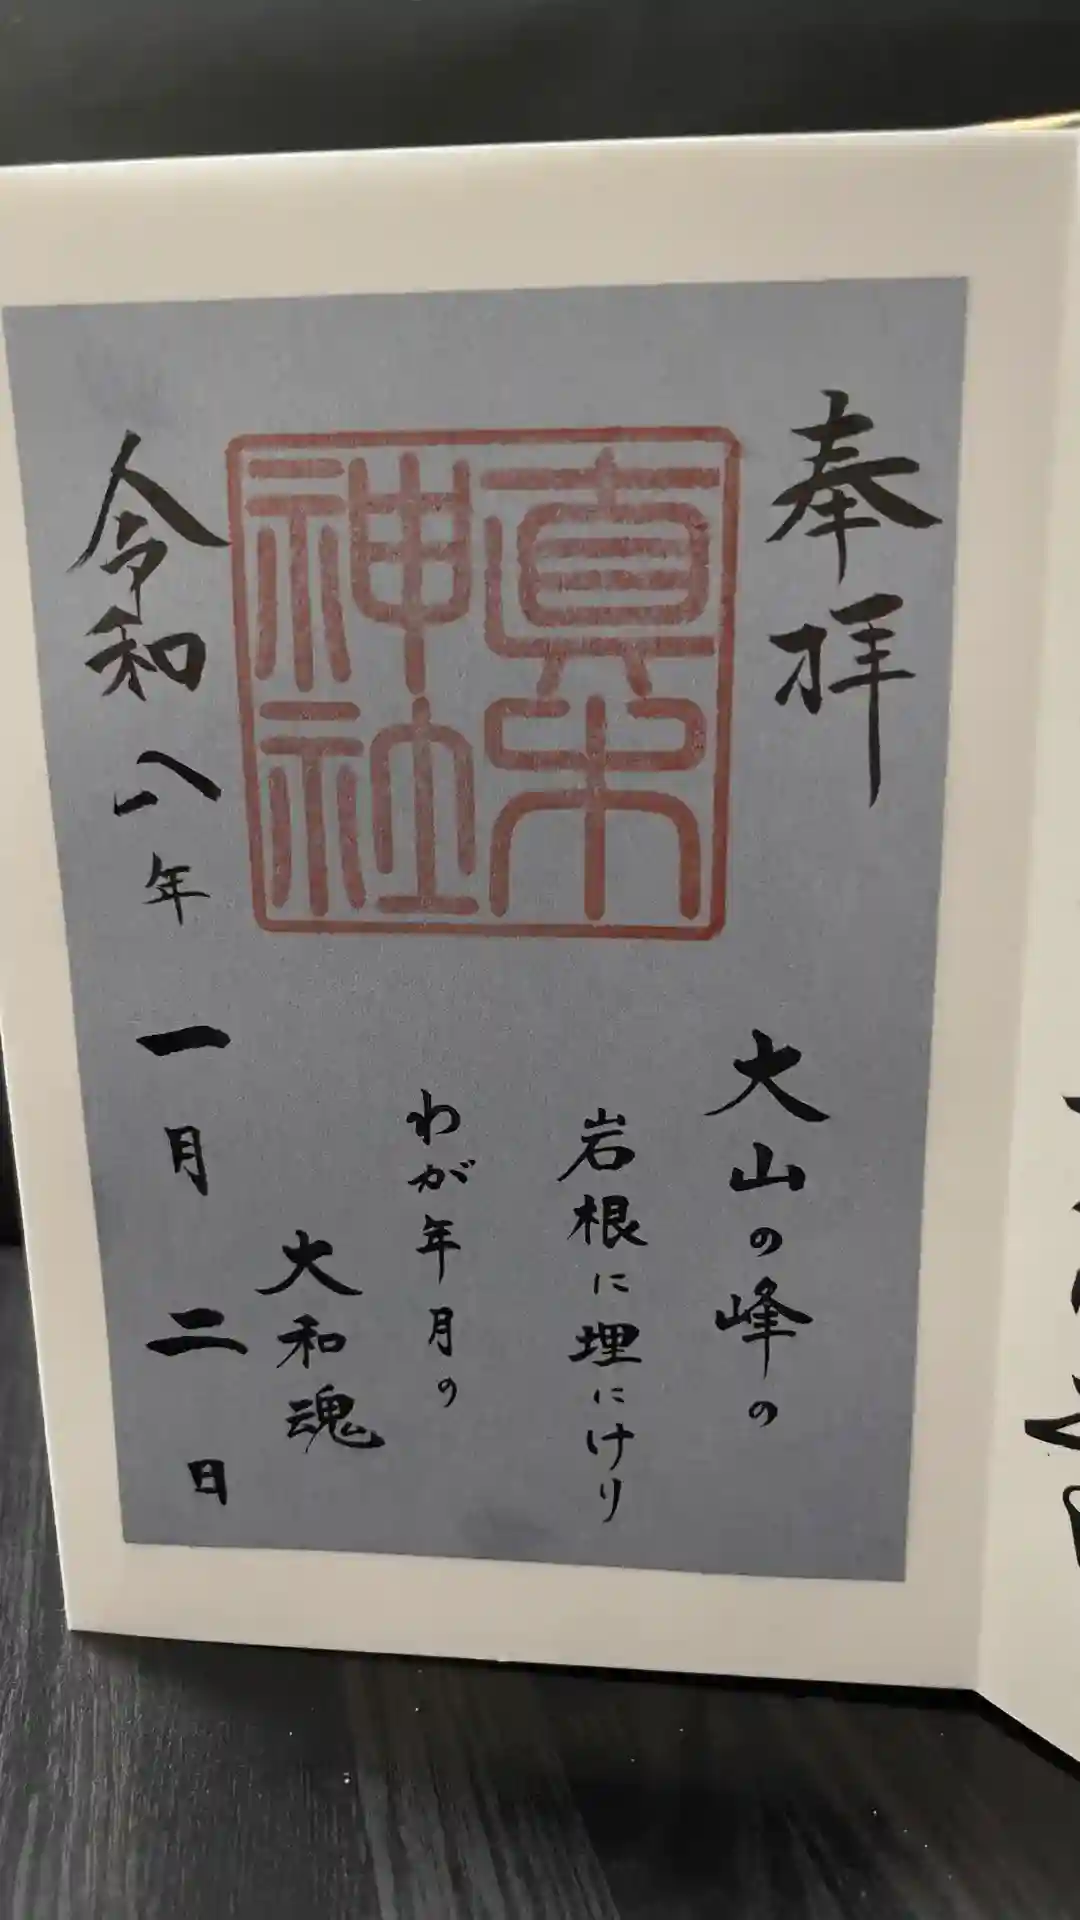 奉拝
真木神社
大山の峰の
岩根に埋にけり
わが年月の
大和魂
令和八年一月二日